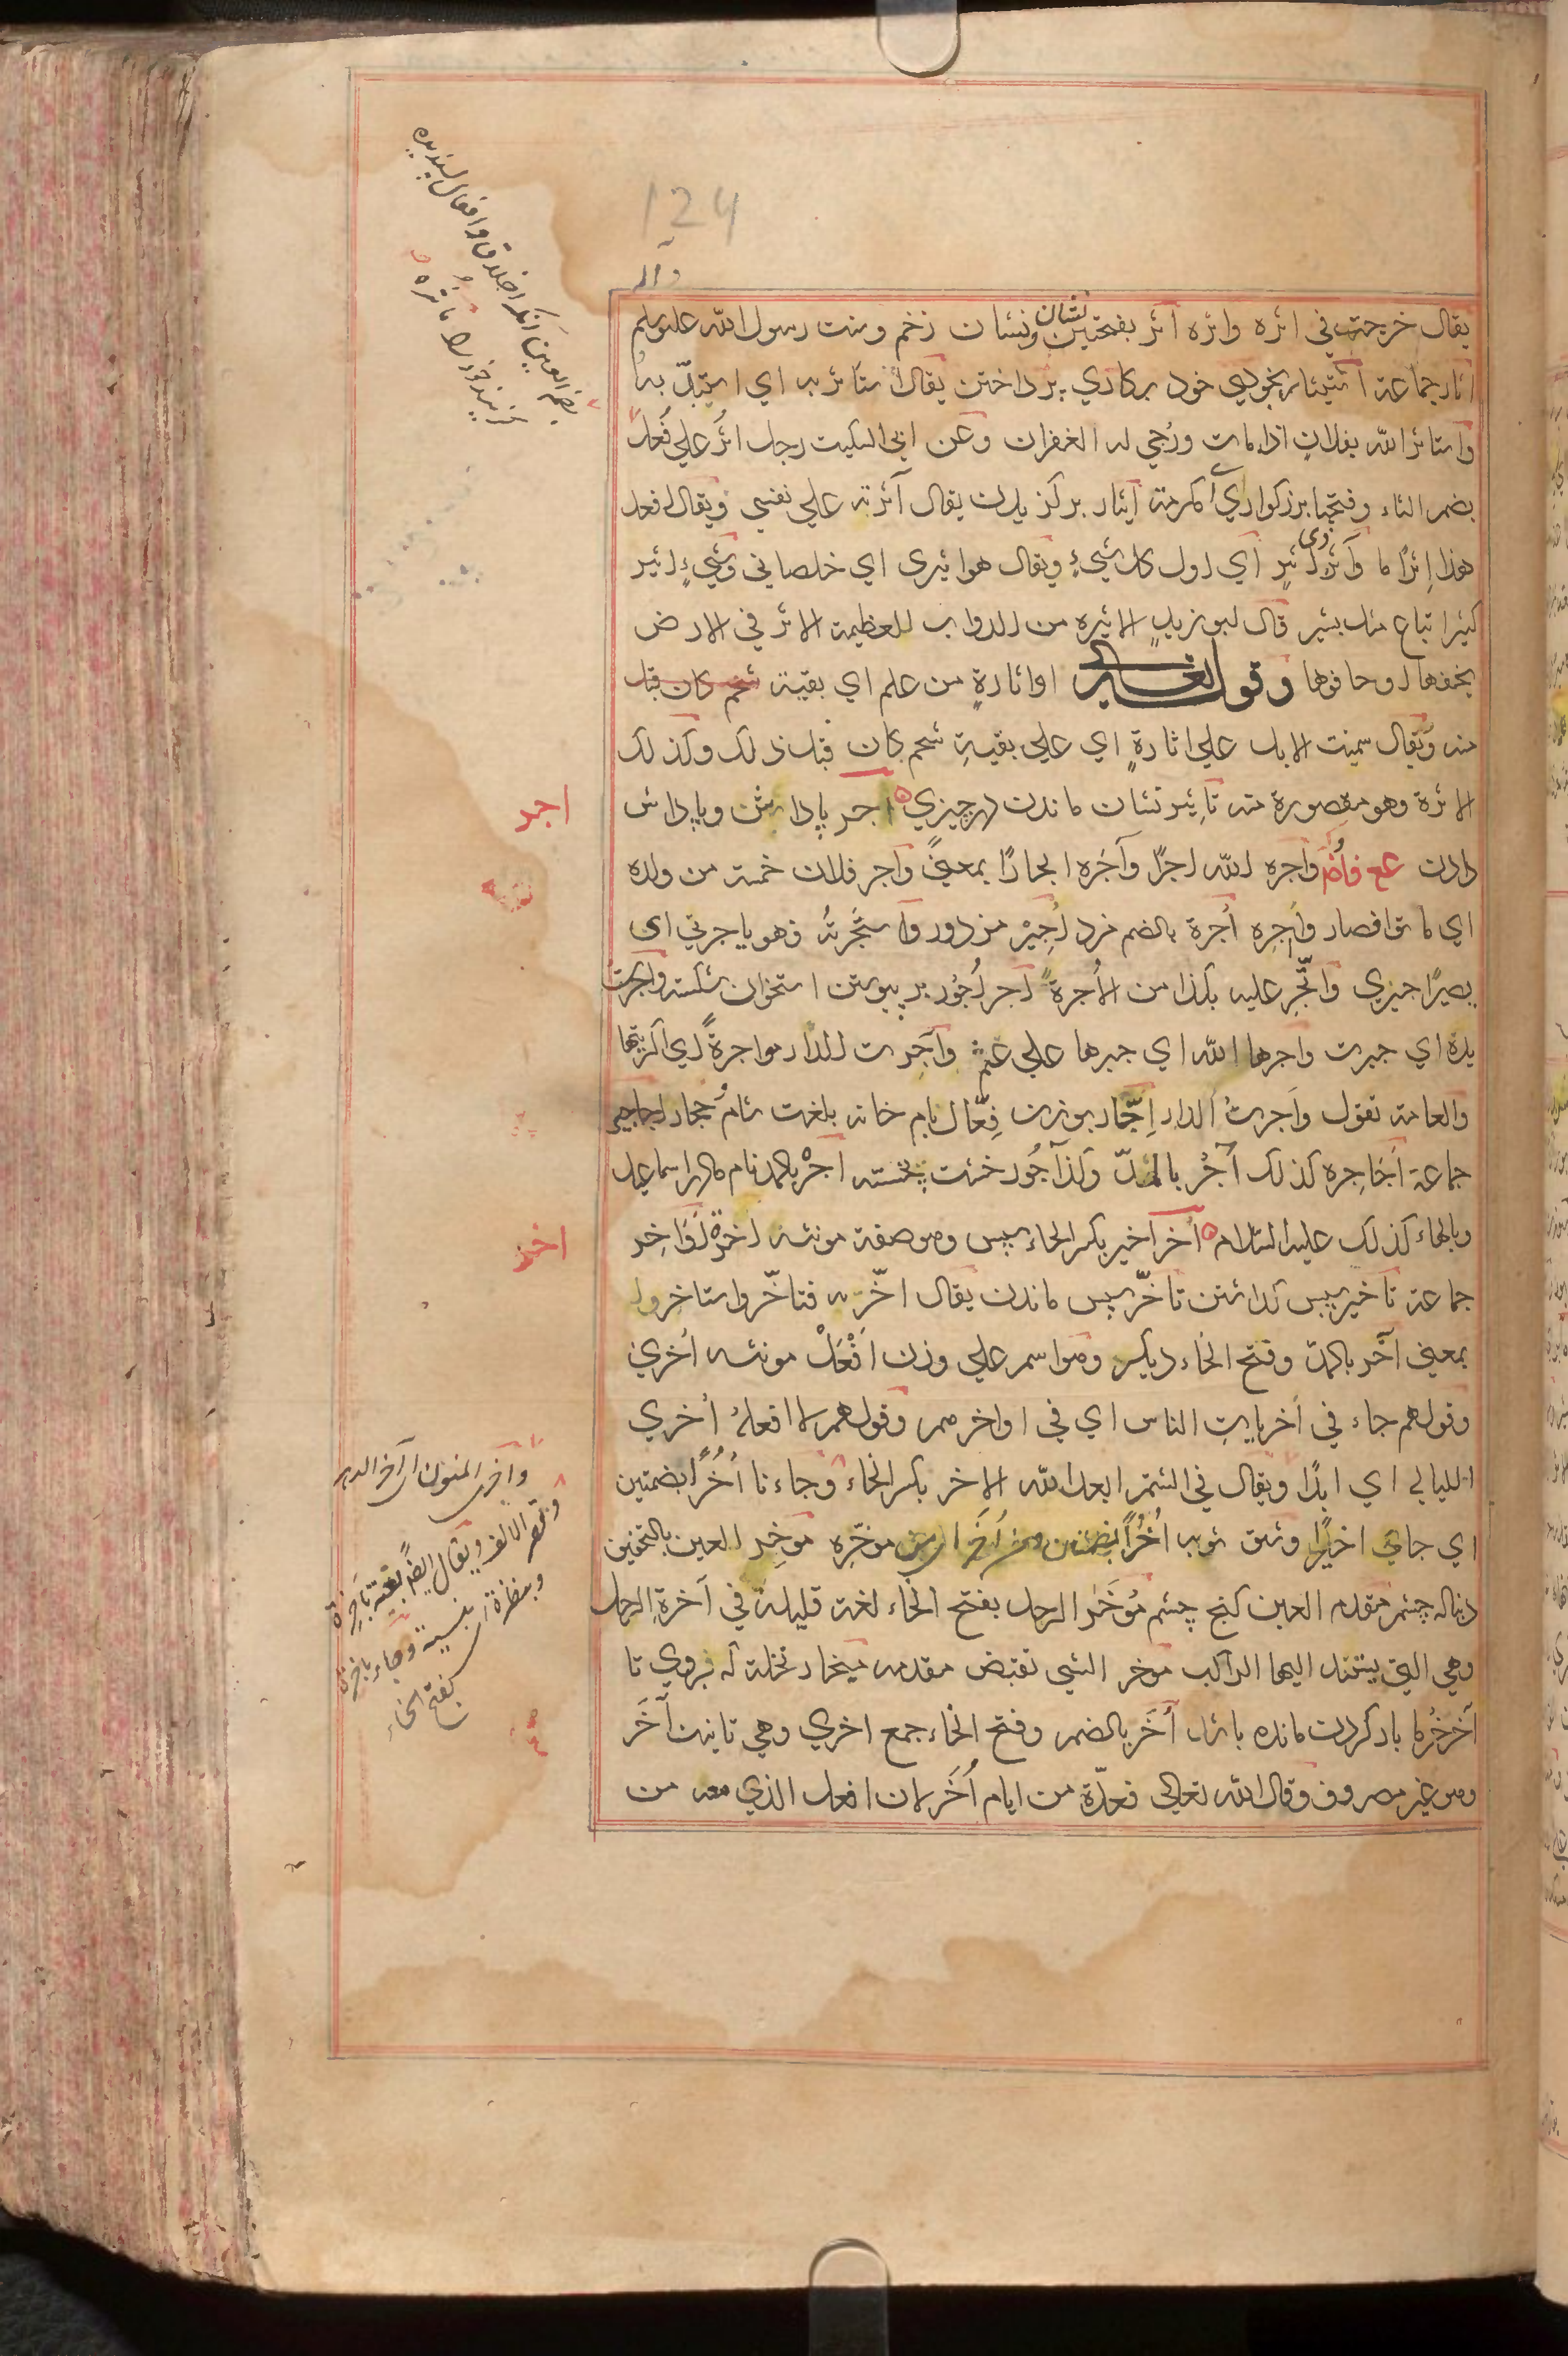 124
يقال خرجت في اثره واثره اثر بفتحتين نشان ونشان زخم وسنت رسول الله عليه وسلم
اثار جماعة استيثار بخودي خود بركاري پرداختن يقال استأثر به اي استبدّ به
واستاثر الله بفلان اذا مات ورُجي له الغفران وعن ابن السكيت رجل اثر علي فعل
بضم الثاء وفتحها بزركواري اي مكرمة ايثار بركزيدن يقال آثرته علي نفسي ويقال افعل
هذا اثرًا ما وآثر ذي اثير اي اول كل شيءٍ ويقال هو اثيرى اي خلصاني وشيءٍ اثير
كثير اتباع مثل بثير قال ابو زيدٍ الاثيره من الدواب العظيمة الاثر في الارض
بخفها او حافرها وقوله تعالى او اثارةٍ من علم اي بقية شحم كان قبل
منه ويقال سمنت الابل علي اثارةٍ اي علي بقيةِ شحم كان قبل ذلك وكذلك
الاثرة وهو مقصورة منه تأثير نشان ماندن در چيزي اجر پاداشن وپاداش
دادن واجره الله اجرًا وآجَره ايجارًا بمعنيً واجر فلان خمسة من ولده
اي ماتوا فصار واجره اُجرة بالضم مزد اجير مزدور واستأجرتُه فهو ياجرني اي
يصير اجيري واتّجر عليه بكذا من الأُجرةً اجر اُجُور بر پيوستن استخوان شكسته واجرتْ
يده اي جبرت واجرها الله اي جبرها علي عثم وآجرت الدار مواجرةً اي اكريتها
والعامة تقول وَاجرتُ الدار اِجّار بوزن فِعّال بام خانه بلغت شام وحجاز اجاجير
جماعة اَجَاجِره كذلك آجُر بالمدّ وكذا آجُور خشت پخته اجَر بالمد نام مادر اسماعيل
وبالهاء كذلك عليه السلام اُخر اخير بكسر الخاء سپس وهو صفة مونثه اخرةٌ اَوَاخِر
جماعة تاخير سپس كداشتن تاخّر سپس ماندن يقال اخّرته فتاخّر واستاخر
بمعني آخَر بالمدّ وفتح الخاء ديكر وهو اسم علي وزن اَفْعَلْ مونثه اُخري
وقولهم جاء في اُخريات الناس اي في اواخرهم وقولهم لا افعله اُخري
الليالي اي ابدًا ويقال في الشتم ابعد الله الاخر بكسر الخاء وجاءنا اُخُرًا بضمتين
اي جاي اخيرًا وشق ثوبه اُخُرًا بضمتين ومن اُخرٍ اي من موخّره موخِر العين بالتخفيف
دنباله چشم مقدم العين كنج چشم مُوخَّر الرحل بفتح الخاء لغة قليلة في آخرةِ الرحل
وهي التي يستند اليها الراكب موخر الشي نقيض مقدمه ميخار نخلة كه بروي تا
آخر خُرما بار كردن مانده باشد اُخَر بالضم وفتح الخاء جمع اخري وهي تانيث آخَر
وهو غير مصروف وقال الله تعالي فعدّة من ايام اُخَر لان افعل الذي معه من
اجر
اخر
واخرى المنون اي آخر الدهر
وقصر الالف ويقال ايضًا بعته بأخِرةٍ
وبنظرةٍ اي بنسية وجاء باخرةٍ
بفتح الخاء